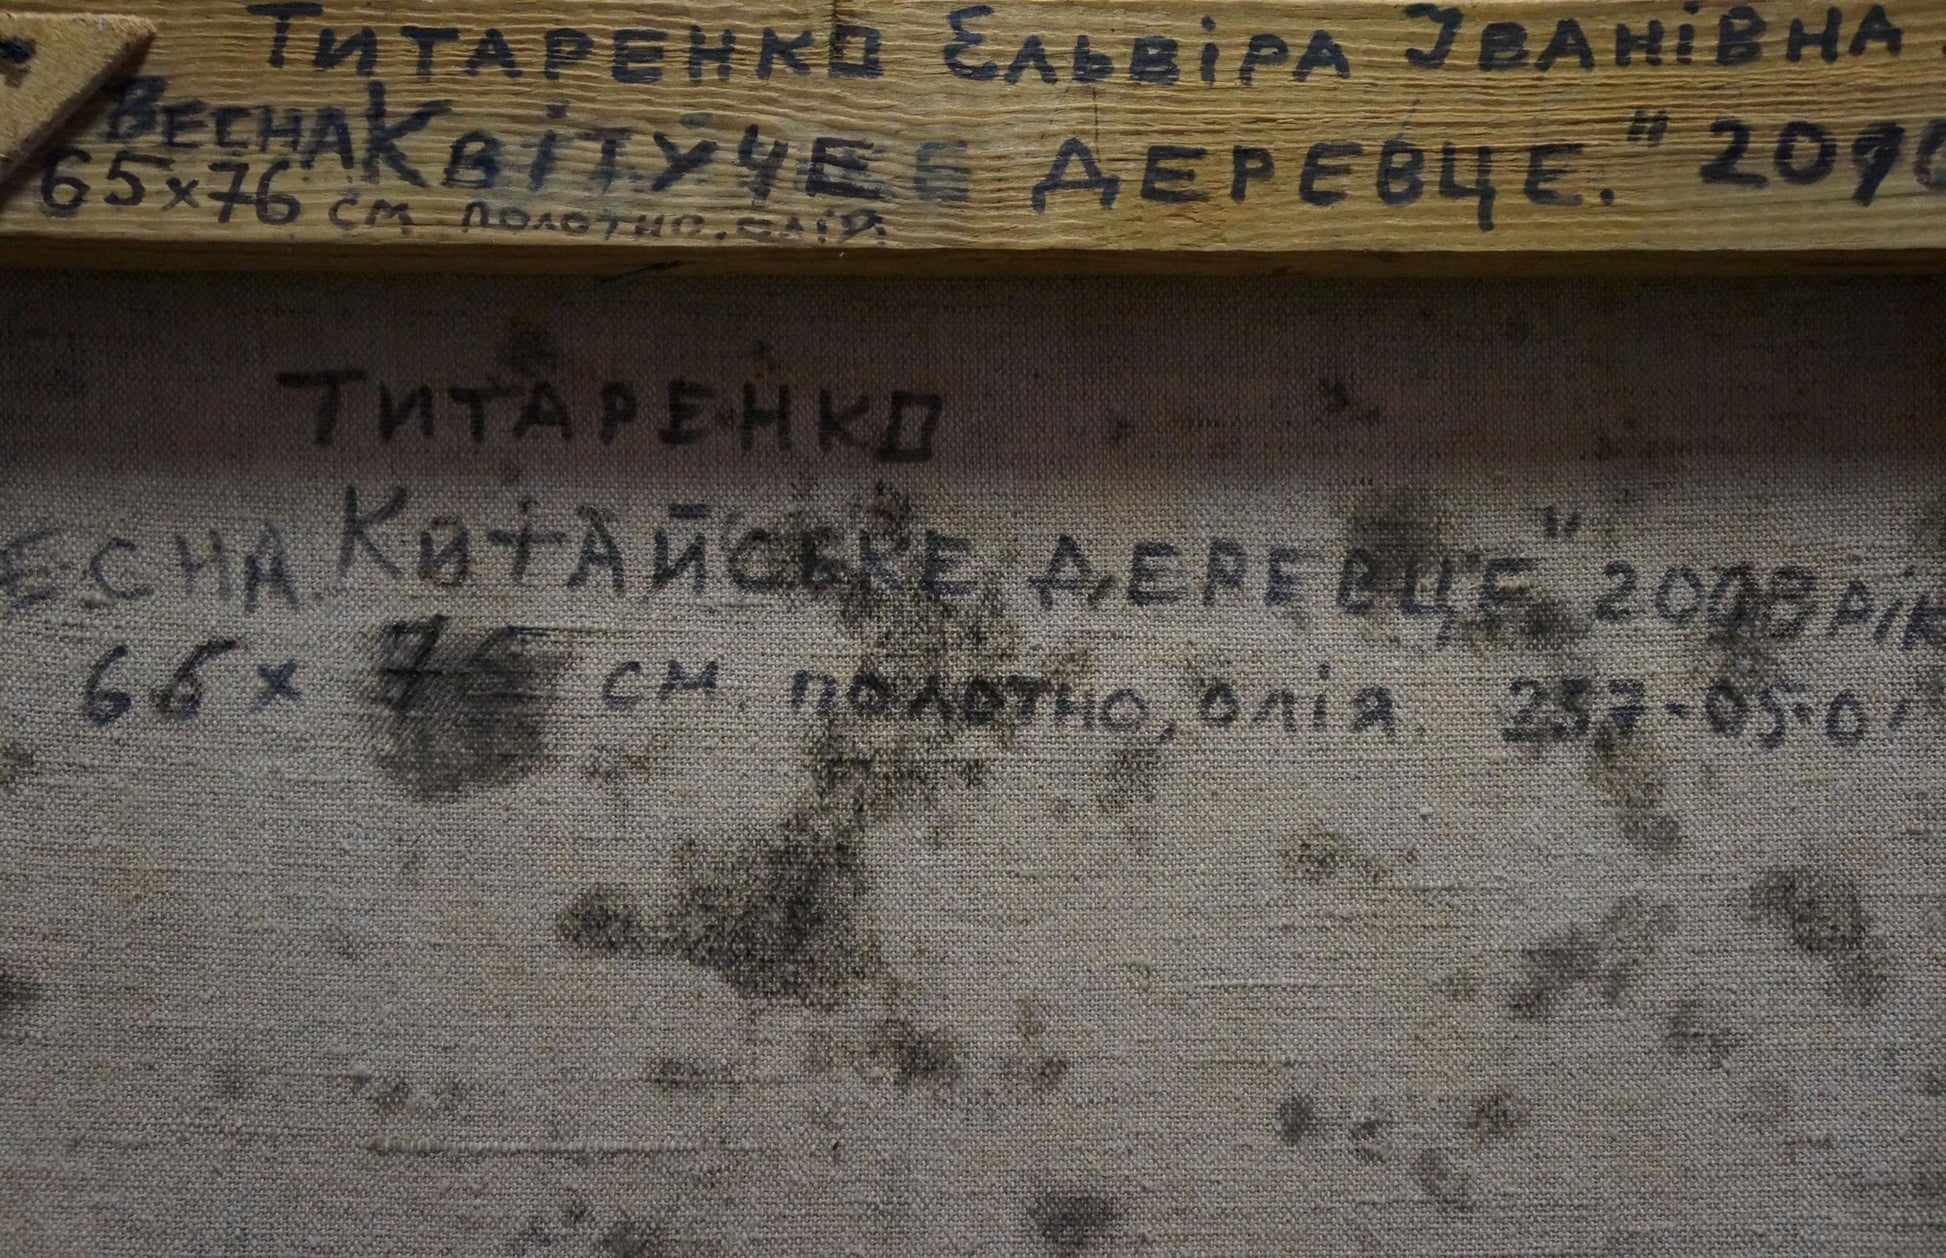 Титаренко Ельвіра Іванівна.
Весна Квітуче деревце." 
65х76 см полотно, олія.
Титаренко
есна. Китайське деревце" 2008 рік
66 х 75 см. полотно, олія. 257-05-01